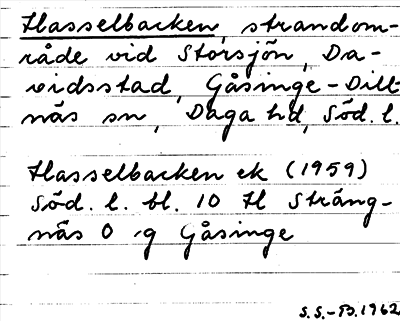 Hasselbacken, strandom-
råde vid Storsjön, Da-
vidsstad, Gåsinge-Dill-
näs sn, Daga hd, Söd. l.
Hasselbacken ek (1959)
Söd. l. bl. 10 H Sträng-
näs O ig Gåsinge
S.S.-B. 1962